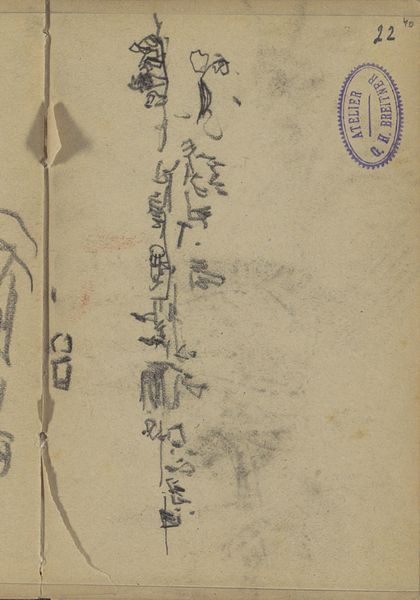 22
40
ATELIER
G. H. BREITNER